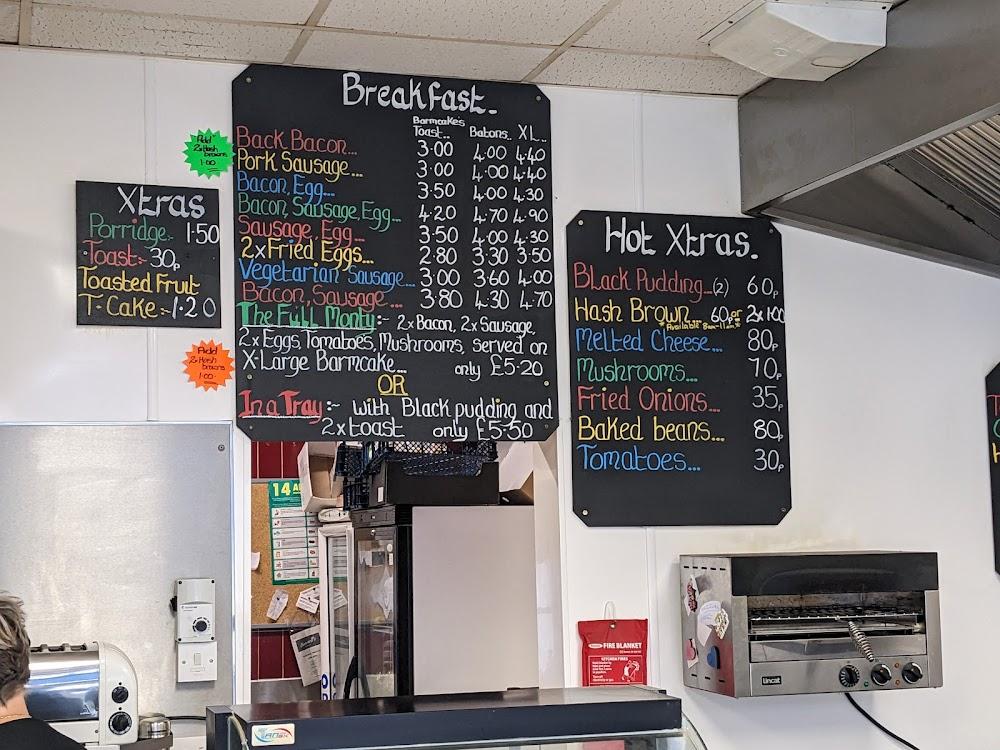 Breakfast.
Barmcake's
Toast.. Batons.. XL..
Back Bacon... 3·00 4·00 4·40
Pork Sausage... 3·00 4·00 4·40
Bacon, Egg... 3·50 4·00 4·30
Bacon, Sausage, Egg... 4·20 4·70 4·90
Sausage, Egg... 3·50 4·00 4·30
2x Fried Eggs... 2·80 3·30 3·50
Vegetarian Sausage... 3·00 3·60 4·00
Bacon, Sausage... 3·80 4·30 4·70
The Full Monty:- 2x Bacon, 2x Sausage,
2x Eggs, Tomatoes, Mushrooms, served on
X-Large Barmcake... only £5·20
OR
In a Tray:- with Black pudding and
2x toast only £5·50
Add
2x Hash
browns
1·00
Xtras
Porridge:- 1·50
Toast:- 30p
Toasted Fruit
T-Cake:- 1·20
Add
2x Hash
browns
1·00
Hot Xtras.
Black Pudding...(2) 60p
Hash Brown... 60p or 2x 1·00
*Available 8am-11am*
Melted Cheese... 80p
Mushrooms... 70p
Fried Onions... 35p
Baked beans... 80p
Tomatoes... 30p
14
FIRE BLANKET
KITCHEN FIRES
Lincat